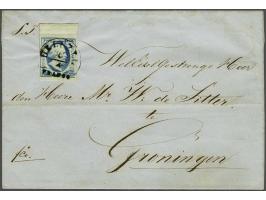 Weledelgestrenge Heer
den Heere Mr. W. de Sitter
te
Groningen